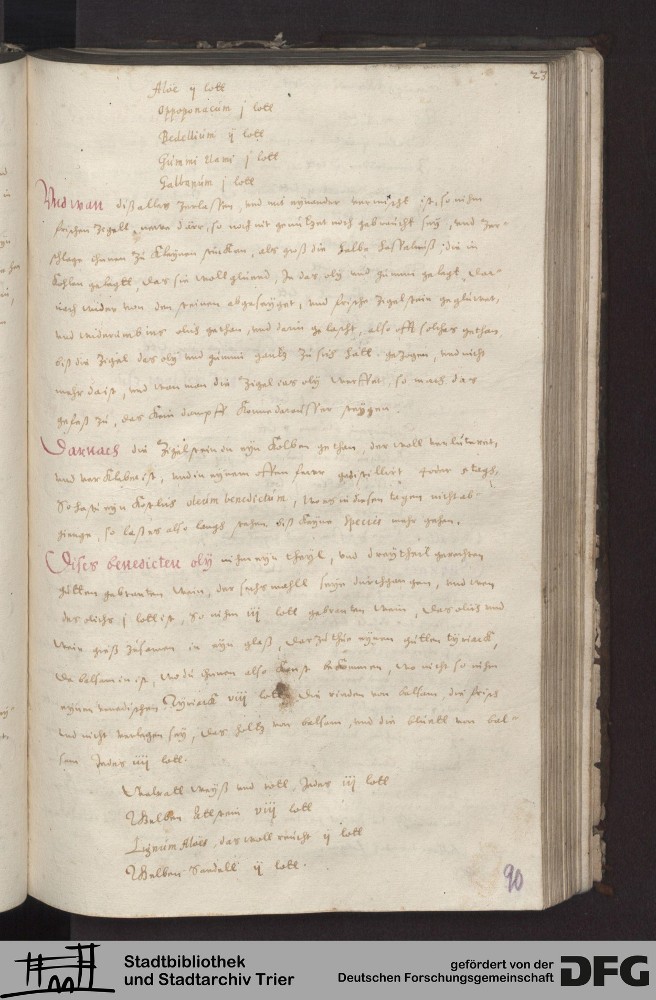 23
Aloe ij lott
Oppoponacum j lott
Bedellium ij lott
Gummi Rami j lott
Galbanum j lott
Und wan diß alles zerlassen, und mit eynander vermischt ist, so nihm
frischen Zigell, newe dürr, so noch nit genützet noch gebraucht sey, und zer-
schlage ihnen zu kleynen stücken, als groß die halbe haselnuß, die in
kohlen gelegtt, das sie woll gluend, In das oly und gummi gelegt, dar-
nach wider von den steinen abgeseyget, und frische Zigelstein gegluewet,
und widerumb ins olich gethan, und darin gelescht, also offt solches gethan
biß die Zigel das oly und gummi gantz zu sich hatt gezogen, und nicht
mehr da ist, und wan man die Zigel ins oly wirffet, so mach das
gefeß zu, das kein dampff kommedarausser steygen.
Darnach die Zigelstein in eyn kolben gethan, der woll verlutirt,
und verklebet ist, und in eynem offen feuer gedistillirt 4 oder 5 tage,
So hastu eyn kostlich oleum benedictum, wo es in diesen tagen nicht ab-
gienge, so laß es also langs stehen biß keyne species mehr gehen.
Dises benedicten oly nihm eyn theyl, und drey theil gerechten
gutten gebranten wein, der sechs mahll seye durchgangen, und wen
des olichs j lott ist, so nihm iij lott gebranten wein, das olich und
wein geuß zusamen in eyn glaß, darzu thue eynen gutten tyriack,
da balsam in ist, wo du ihnen also kanst bekommen, wo nicht so nihm
eynen venedischen Tyriack viij lott, die rinden von balsam, die frisch
und nicht verlegen sey, das holtz von balsam, und die bluett von bal-
sam Jedes iiij lott.
weyß und rott, Jedes iij lott
viij lott
Lignum Aloes, das woll reucht ij lott
Sandell ij lott.
90
Stadtbibliothek
und Stadtarchiv Trier
gefördert von der
Deutschen Forschungsgemeinschaft
DFG